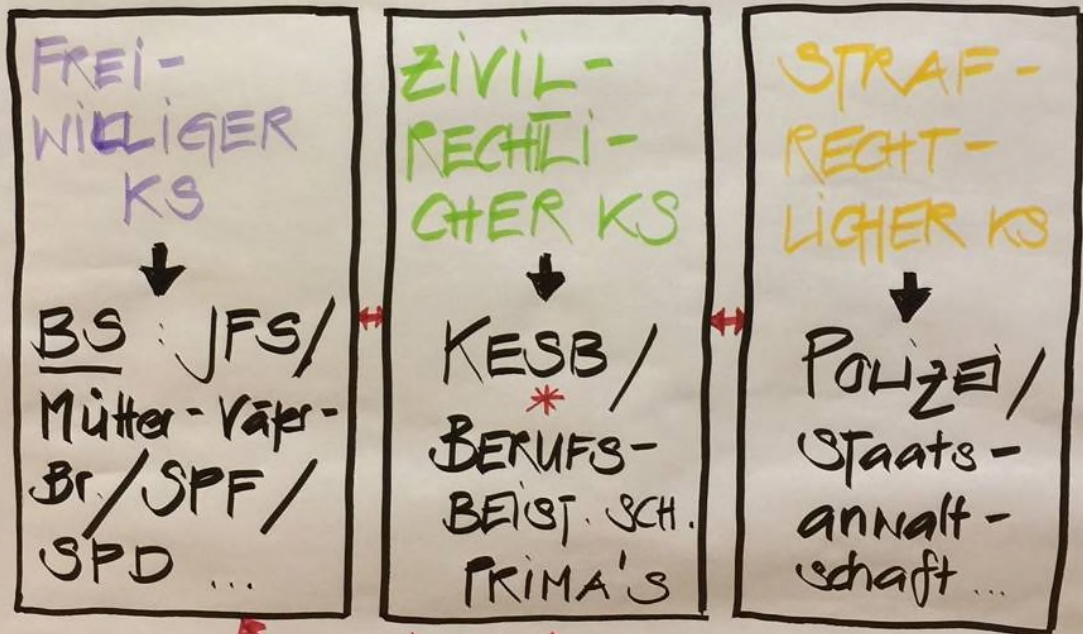 FREI-
WILLIGER
KS
BS : JFS/
Mütter-Väter-
Br./SPF/
SPD ...
ZIVIL-
RECHTLI-
CHER KS
KESB /
*
BERUFS-
BEIST. SCH.
PRIMA'S
STRAF-
RECHT-
LICHER KS
POLIZEI/
STaats-
anwalt-
schaft...